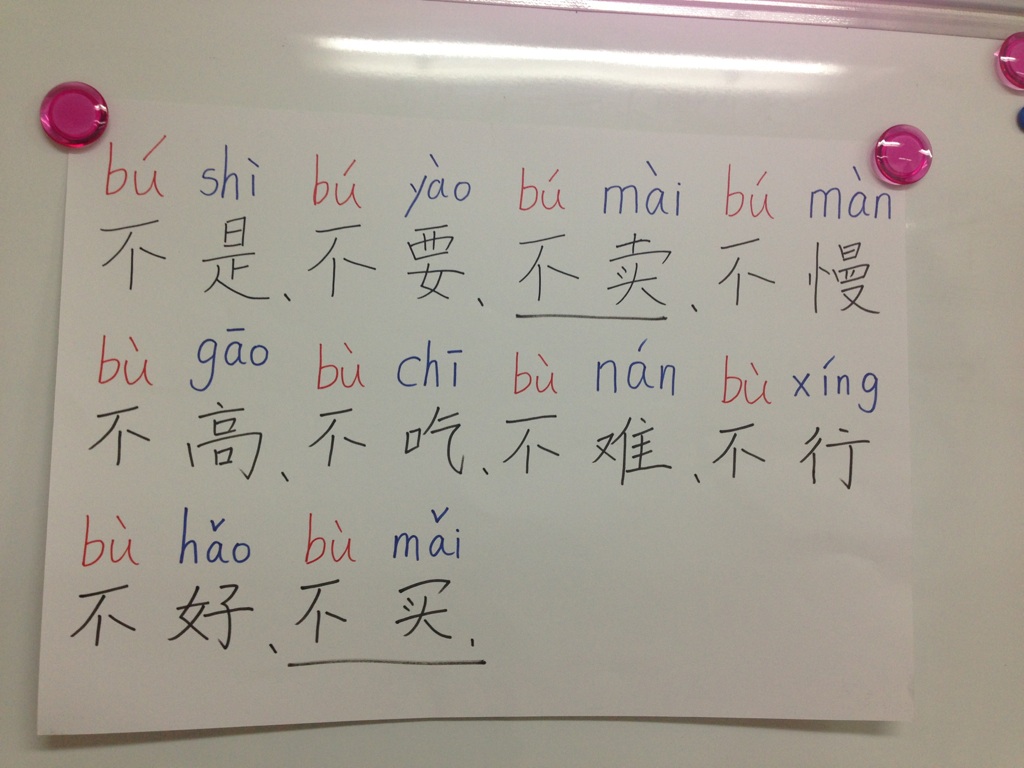 bú shì bú yào bú mài bú màn
不是、不要、不卖、不慢
bù gāo bù chī bù nán bù xíng
不高、不吃、不难、不行
bù hǎo bù mǎi
不好、不买、